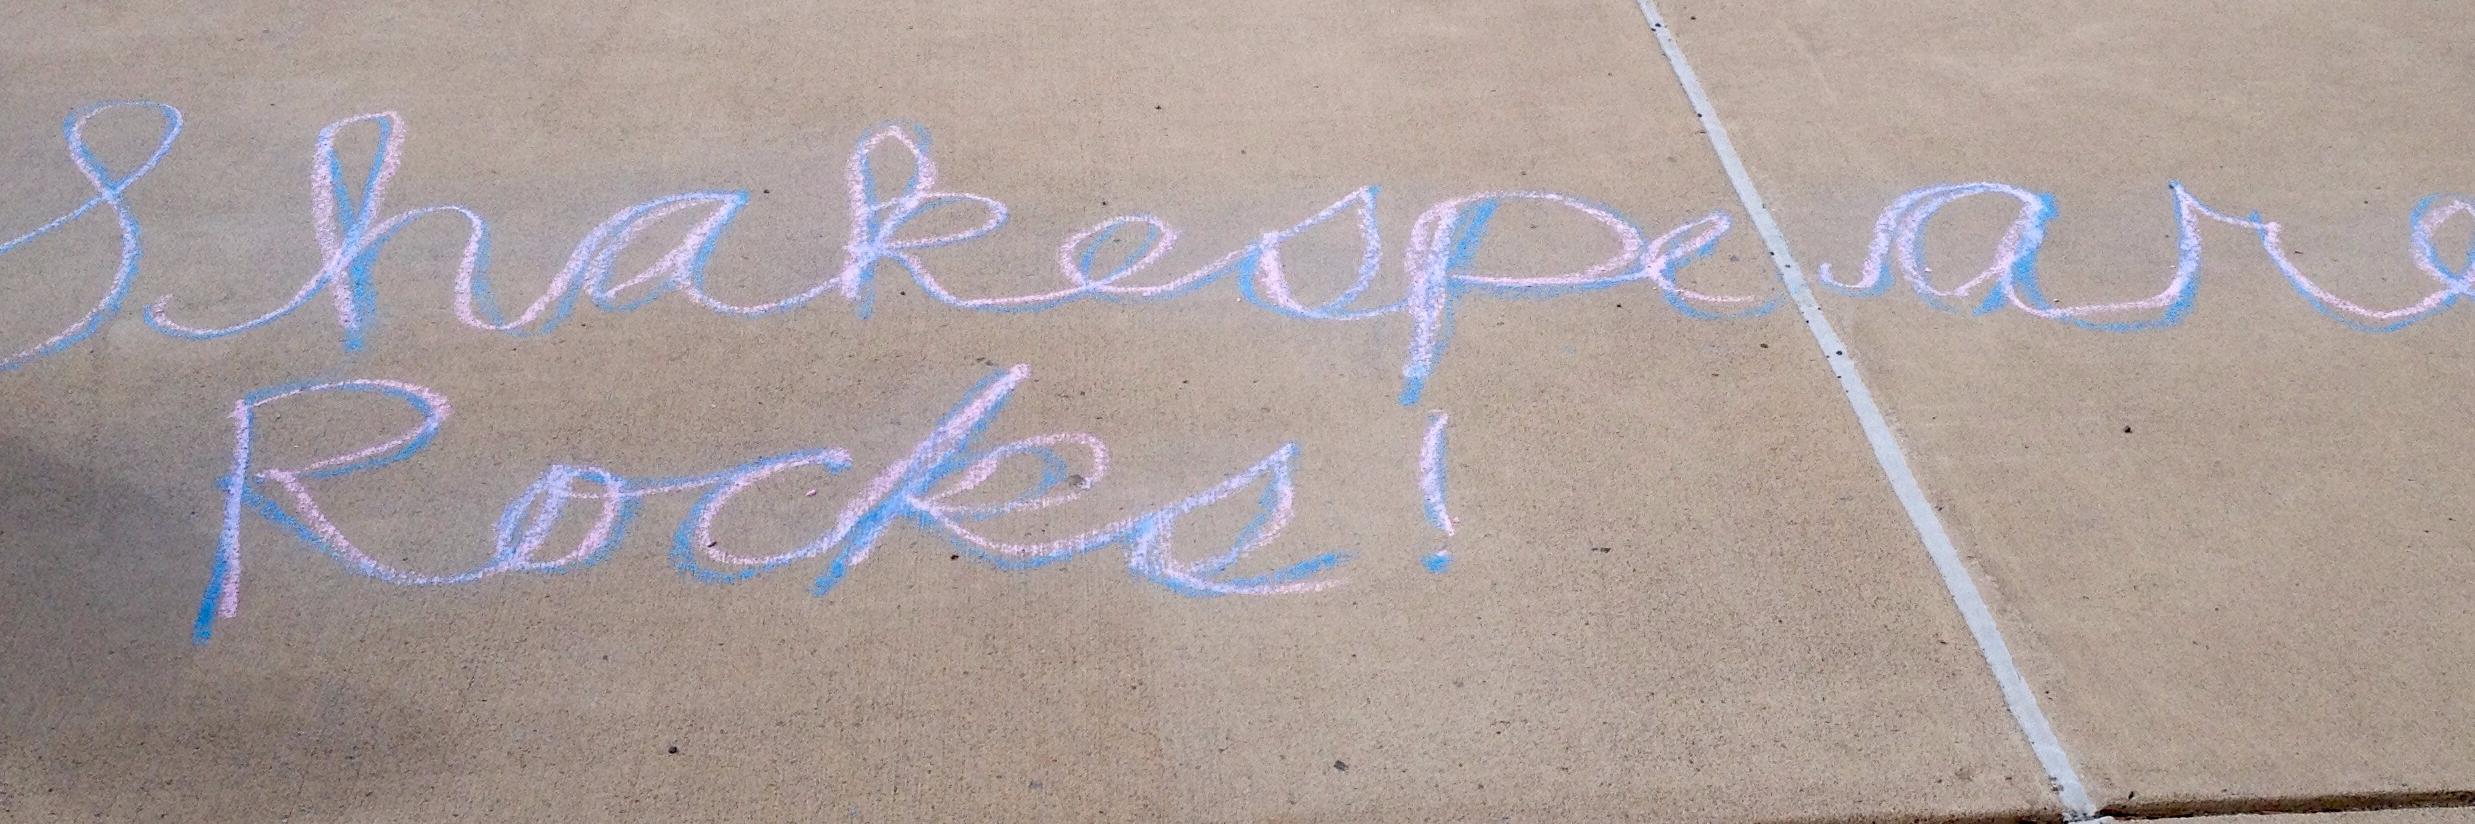 Shakespeare
Rocks!